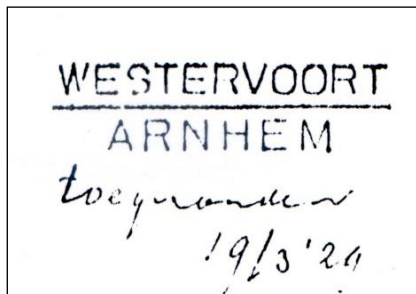 WESTERVOORT
ARNHEM
toegezonden